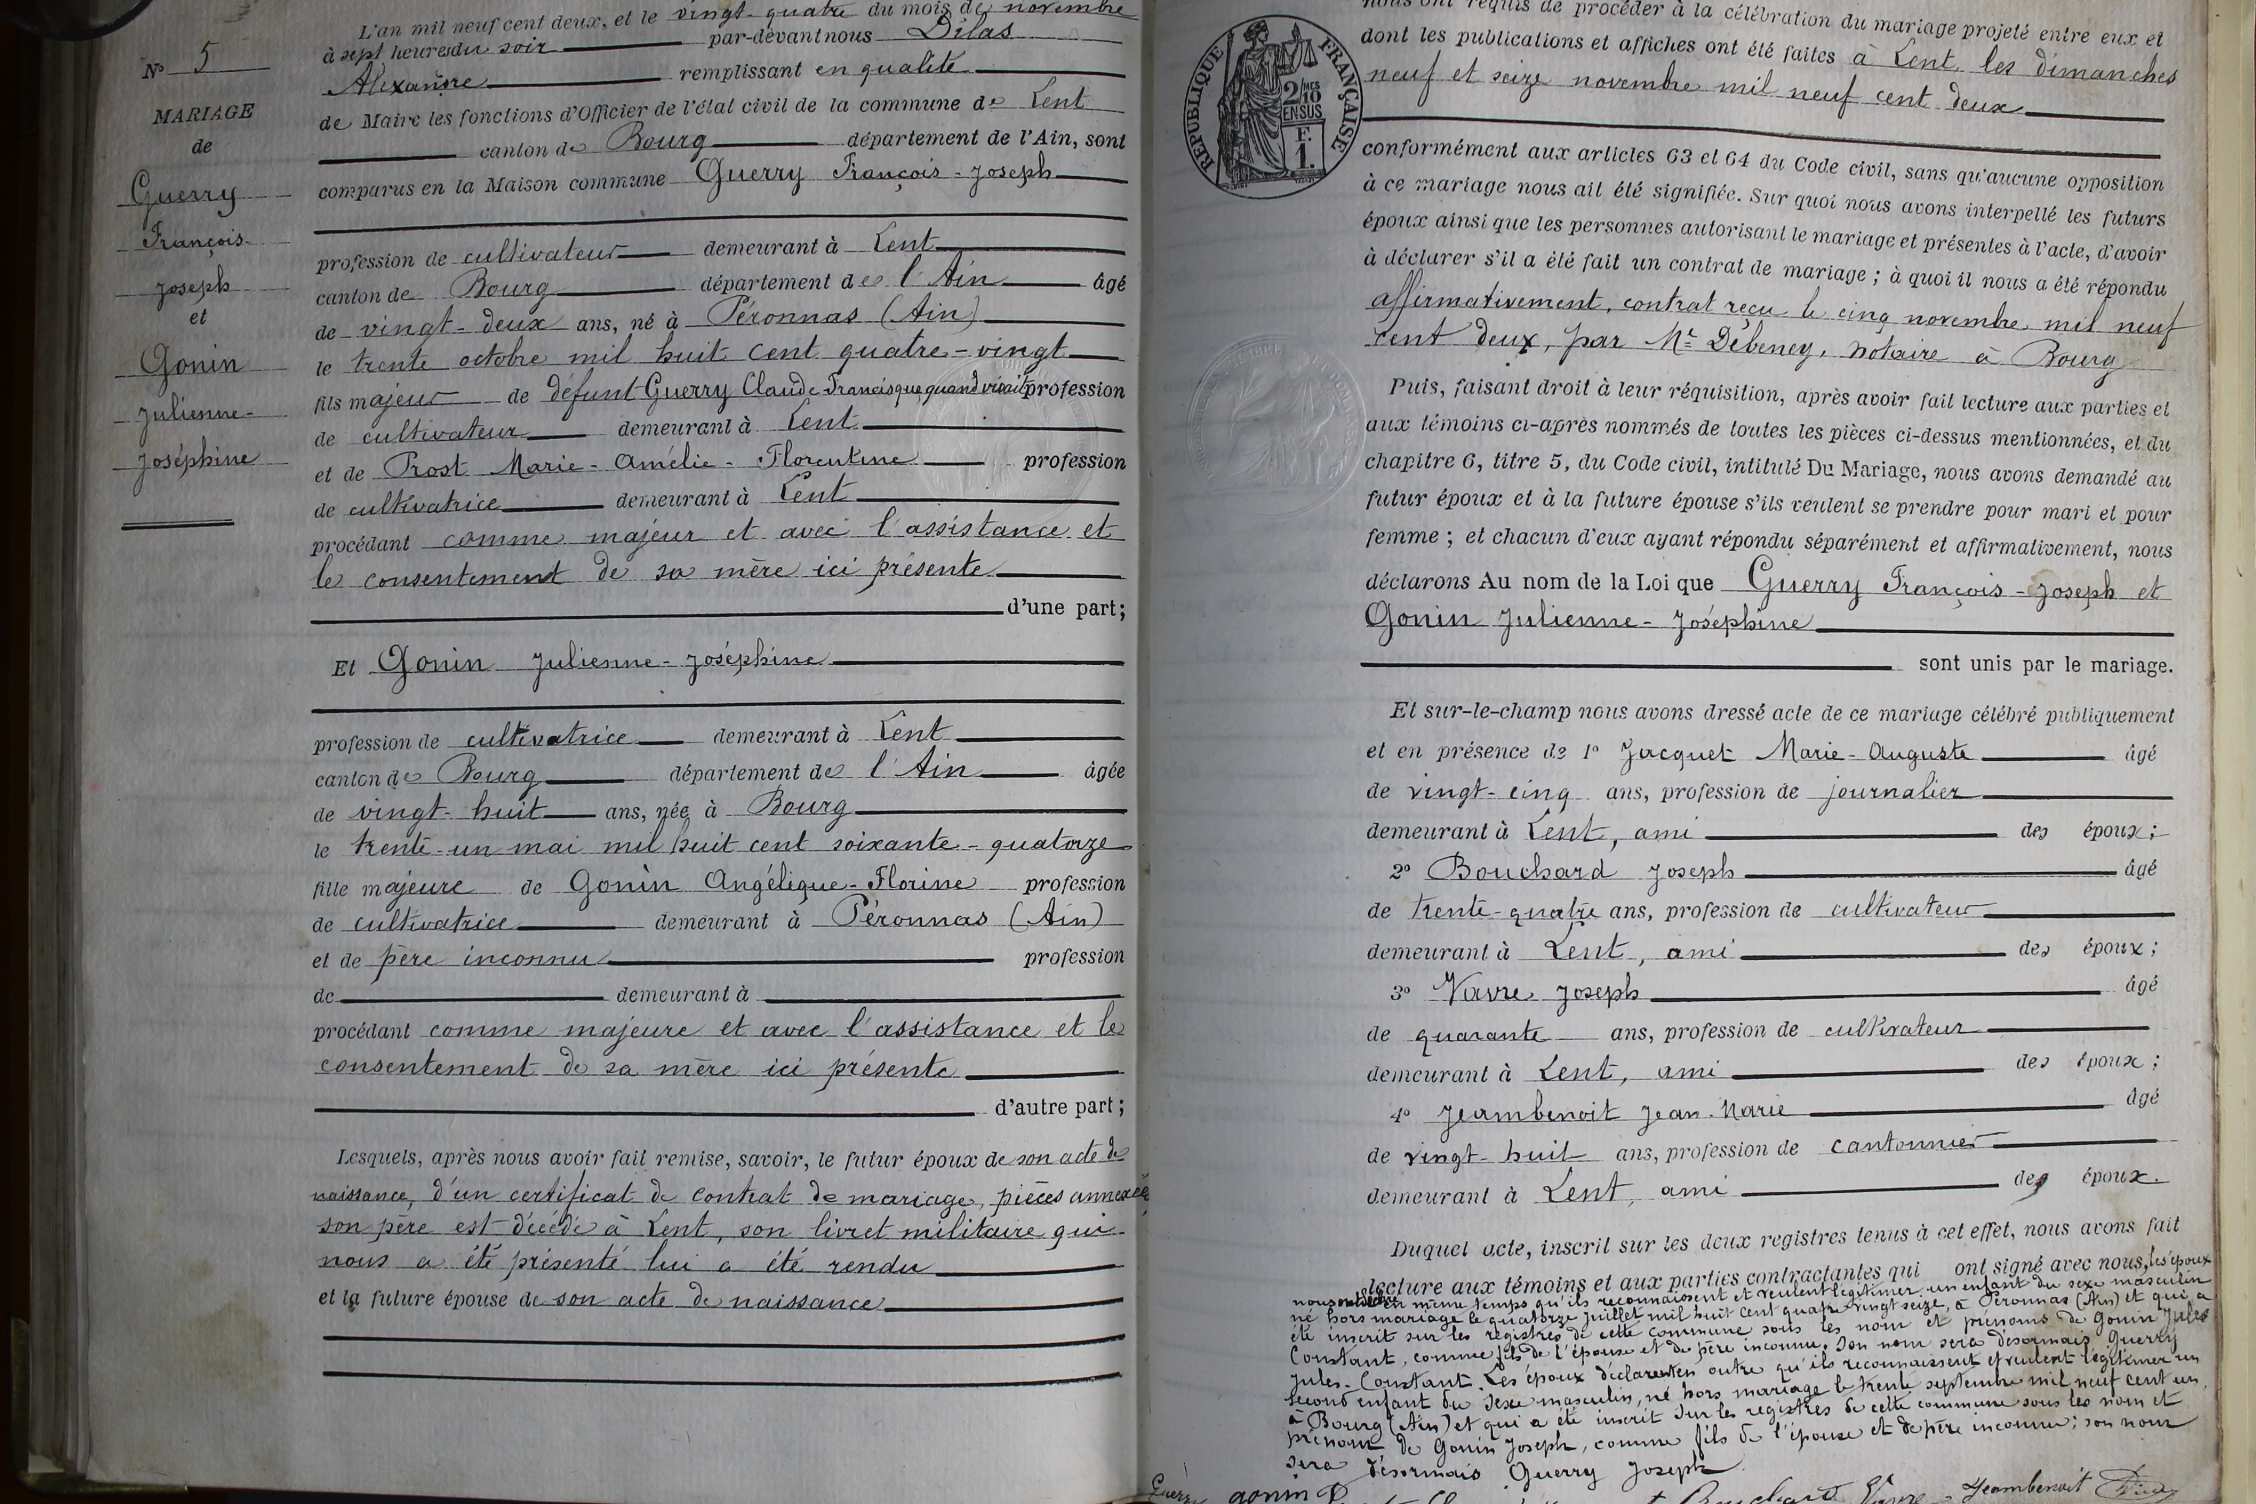 L'an mil neuf cent deux, et le vingt-quatre du mois de novembre
à sept heures du soir par-devant nous Dilas
Alexandre remplissant en qualité
de Maire les fonctions d'Officier de l'état civil de la commune de Lent
canton de Bourg département de l'Ain, sont
comparus en la Maison commune Guerry François-Joseph
profession de cultivateur demeurant à Lent
canton de Bourg département de l'Ain âgé
de vingt-deux ans, né à Péronnas (Ain)
le trente octobre mil huit cent quatre-vingt
fils majeur de défunt Guerry Claude Francisque quand vivait profession
de cultivateur demeurant à Lent
et de Prost Marie-Amélie-Florentine profession
de cultivatrice demeurant à Lent
procédant comme majeur et avec l'assistance et
le consentement de sa mère ici présente
d'une part;
Et Gonin Julienne-Joséphine
profession de cultivatrice demeurant à Lent
canton de Bourg département de l'Ain âgée
de vingt-huit ans, née à Bourg
le trente-un mai mil huit cent soixante-quatorze
fille majeure de Gonin Angélique-Florine profession
de cultivatrice demeurant à Péronnas (Ain)
et de père inconnu profession
de demeurant à
procédant comme majeure et avec l'assistance et le
consentement de sa mère ici présente
d'autre part;
Lesquels, après nous avoir fait remise, savoir, le futur époux de son acte de
naissance, d'un certificat de contrat de mariage, pièces annexées
son père est décédé à Lent, son livret militaire qui
nous a été présenté lui a été rendu
et la future épouse de son acte de naissance
No 5
MARIAGE
de
Guerry
François-
Joseph
et
Gonin
Julienne-
Joséphine
nous ont requis de procéder à la célébration du mariage projeté entre eux et
dont les publications et affiches ont été faites à Lent les dimanches
neuf et seize novembre mil neuf cent deux
conformément aux articles 63 et 64 du Code civil, sans qu'aucune opposition
à ce mariage nous ait été signifiée. Sur quoi nous avons interpellé les futurs
époux ainsi que les personnes autorisant le mariage et présentes à l'acte, d'avoir
à déclarer s'il a été fait un contrat de mariage; à quoi il nous a été répondu
affirmativement, contrat reçu le cinq novembre mil neuf
cent deux, par Me Débeney, notaire à Bourg
Puis, faisant droit à leur réquisition, après avoir fait lecture aux parties et
aux témoins ci-après nommés de toutes les pièces ci-dessus mentionnées, et du
chapitre 6, titre 5, du Code civil, intitulé Du Mariage, nous avons demandé au
futur époux et à la future épouse s'ils veulent se prendre pour mari et pour
femme; et chacun d'eux ayant répondu séparément et affirmativement, nous
déclarons Au nom de la Loi que Guerry François-Joseph et
Gonin Julienne-Joséphine
sont unis par le mariage.
Et sur-le-champ nous avons dressé acte de ce mariage célébré publiquement
et en présence de 1o Jacquet Marie-Auguste âgé
de vingt-cinq ans, profession de journalier
demeurant à Lent, ami des époux;
2o Bouchard Joseph âgé
de trente-quatre ans, profession de cultivateur
demeurant à Lent, ami des époux;
3o Vavre Joseph âgé
de quarante ans, profession de cultivateur
demeurant à Lent, ami des époux;
4o Jeambenoit Jean-Marie âgé
de vingt-huit ans, profession de cantonnier
demeurant à Lent, ami des époux.
Duquel acte, inscrit sur les deux registres tenus à cet effet, nous avons fait
lecture aux témoins et aux parties contractantes qui ont signé avec nous, les époux
en même temps qu'ils reconnaissent et veulent légitimer un enfant du sexe masculin
né hors mariage le quatorze juillet mil huit cent quatre vingt seize, à Péronnas (Ain) et qui a
été inscrit sur les registres de cette commune sous les nom et prénoms de Gonin Jules
Constant, comme fils de l'épouse et de père inconnu. Son nom sera désormais Guerry
Jules-Constant. Les époux déclarent en outre qu'ils reconnaissent et veulent légitimer un
second enfant du sexe masculin, né hors mariage le trente septembre mil neuf cent un,
à Bourg (Ain) et qui a été inscrit sur les registres de cette commune sous les nom et
prénom de Gonin Joseph, comme fils de l'épouse et de père inconnu; son nom
sera désormais Guerry Joseph
Guerry gonin Bouchard Vavre Jeambenoit
RÉPUBLIQUE FRANÇAISE
2/10
EN SUS
F.
1.